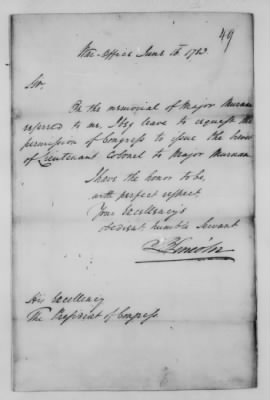 49
War-Office June 16 1783
Sir,
On the memorial of Major Murnan
referred to me, I beg leave to request the
permission of Congress to issue the brevet
of Lieutenant Colonel to Major Murnan
I have the honor to be,
with perfect respect
Your Excellency's
obedient humble Servant
B Lincoln
His Excellency
The President of Congress.